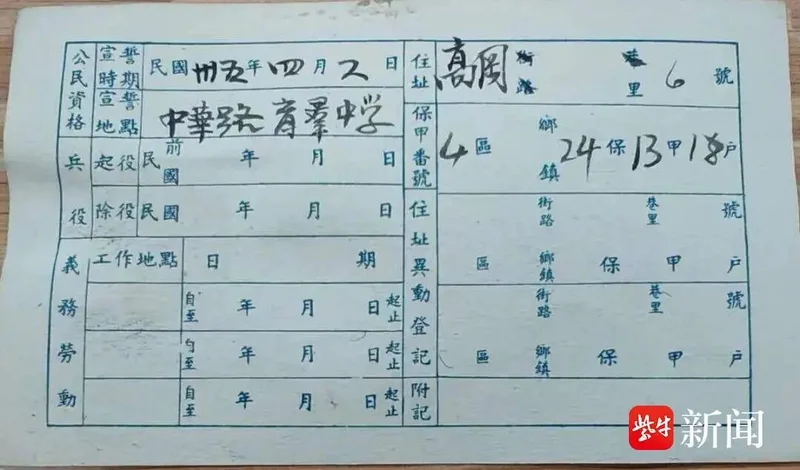 公民資格 宣誓時期 民國卅五年四月 日
宣誓地點 中華路育羣中学
兵役 起役 民前國 年 月 日
除役 民國 年 月 日
義務勞動 工作地點 日 期
自至 年 月 日 起止
自至 年 月 日 起止
自至 年 月 日 起止
住址 高岡 街路 巷里 6 號
保甲番號 4 區 鄉鎮 24 保 13 甲 戶
住址異動登記 街路 巷里 號
區 鄉鎮 保 甲 戶
街路 巷里 號
區 鄉鎮 保 甲 戶
附記
紫牛新闻